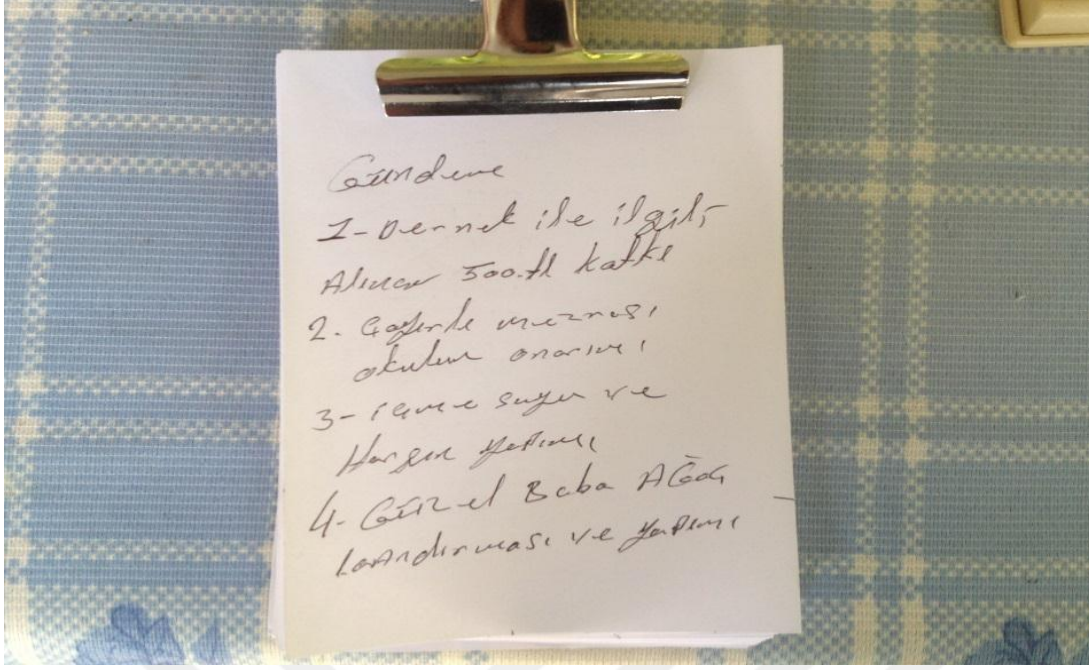 Gündem
1-Dernek ile ilgili
Alınan 500.tl katkı
2. mezrası
okulun onarımı
3- içme suyu ve
yapımı
4- Güzel Baba AĞaç
Landırması ve yapımı